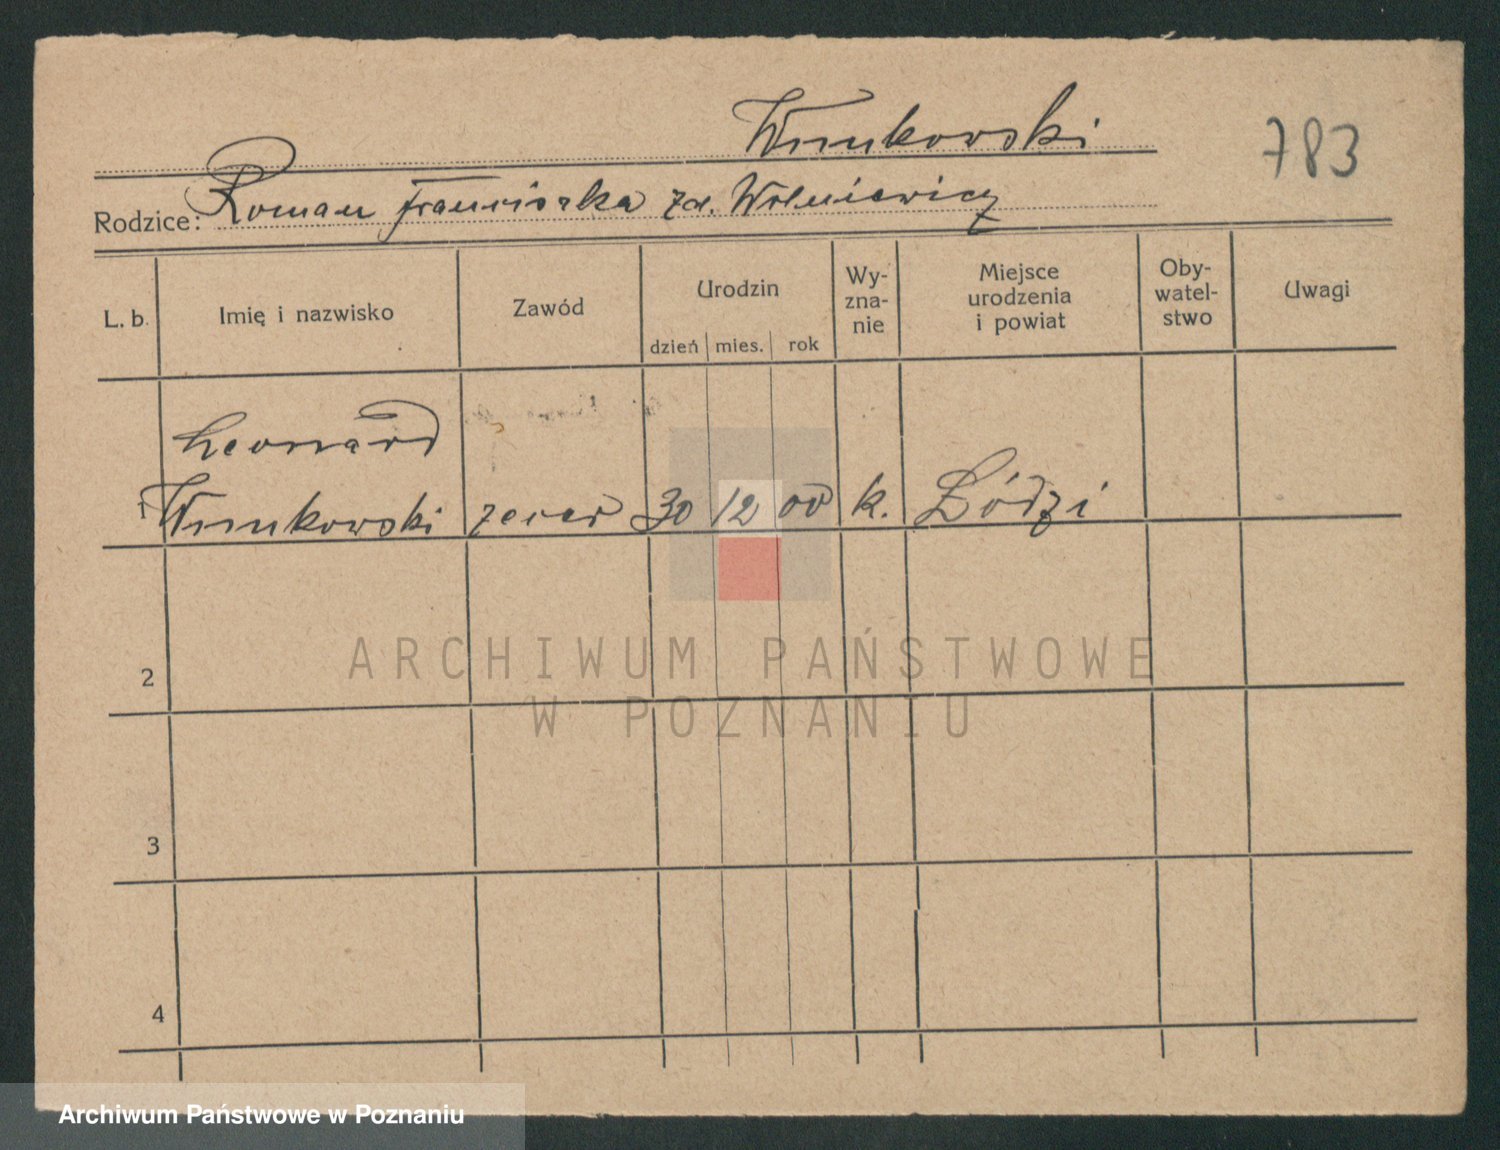 Wnukowski
783
Rodzice: Roman Franciszka zd. Wolniewicz
L. b. Imię i nazwisko Zawód Urodzin dzień mies. rok Wy-zna-nie Miejsce urodzenia i powiat Oby-watel-stwo Uwagi
Leonard
1 Wnukowski zecer 30 12 00 k. Łódzi
2
ARCHIWUM PAŃSTWOWE
W POZNANIU
3
4
Archiwum Państwowe w Poznaniu